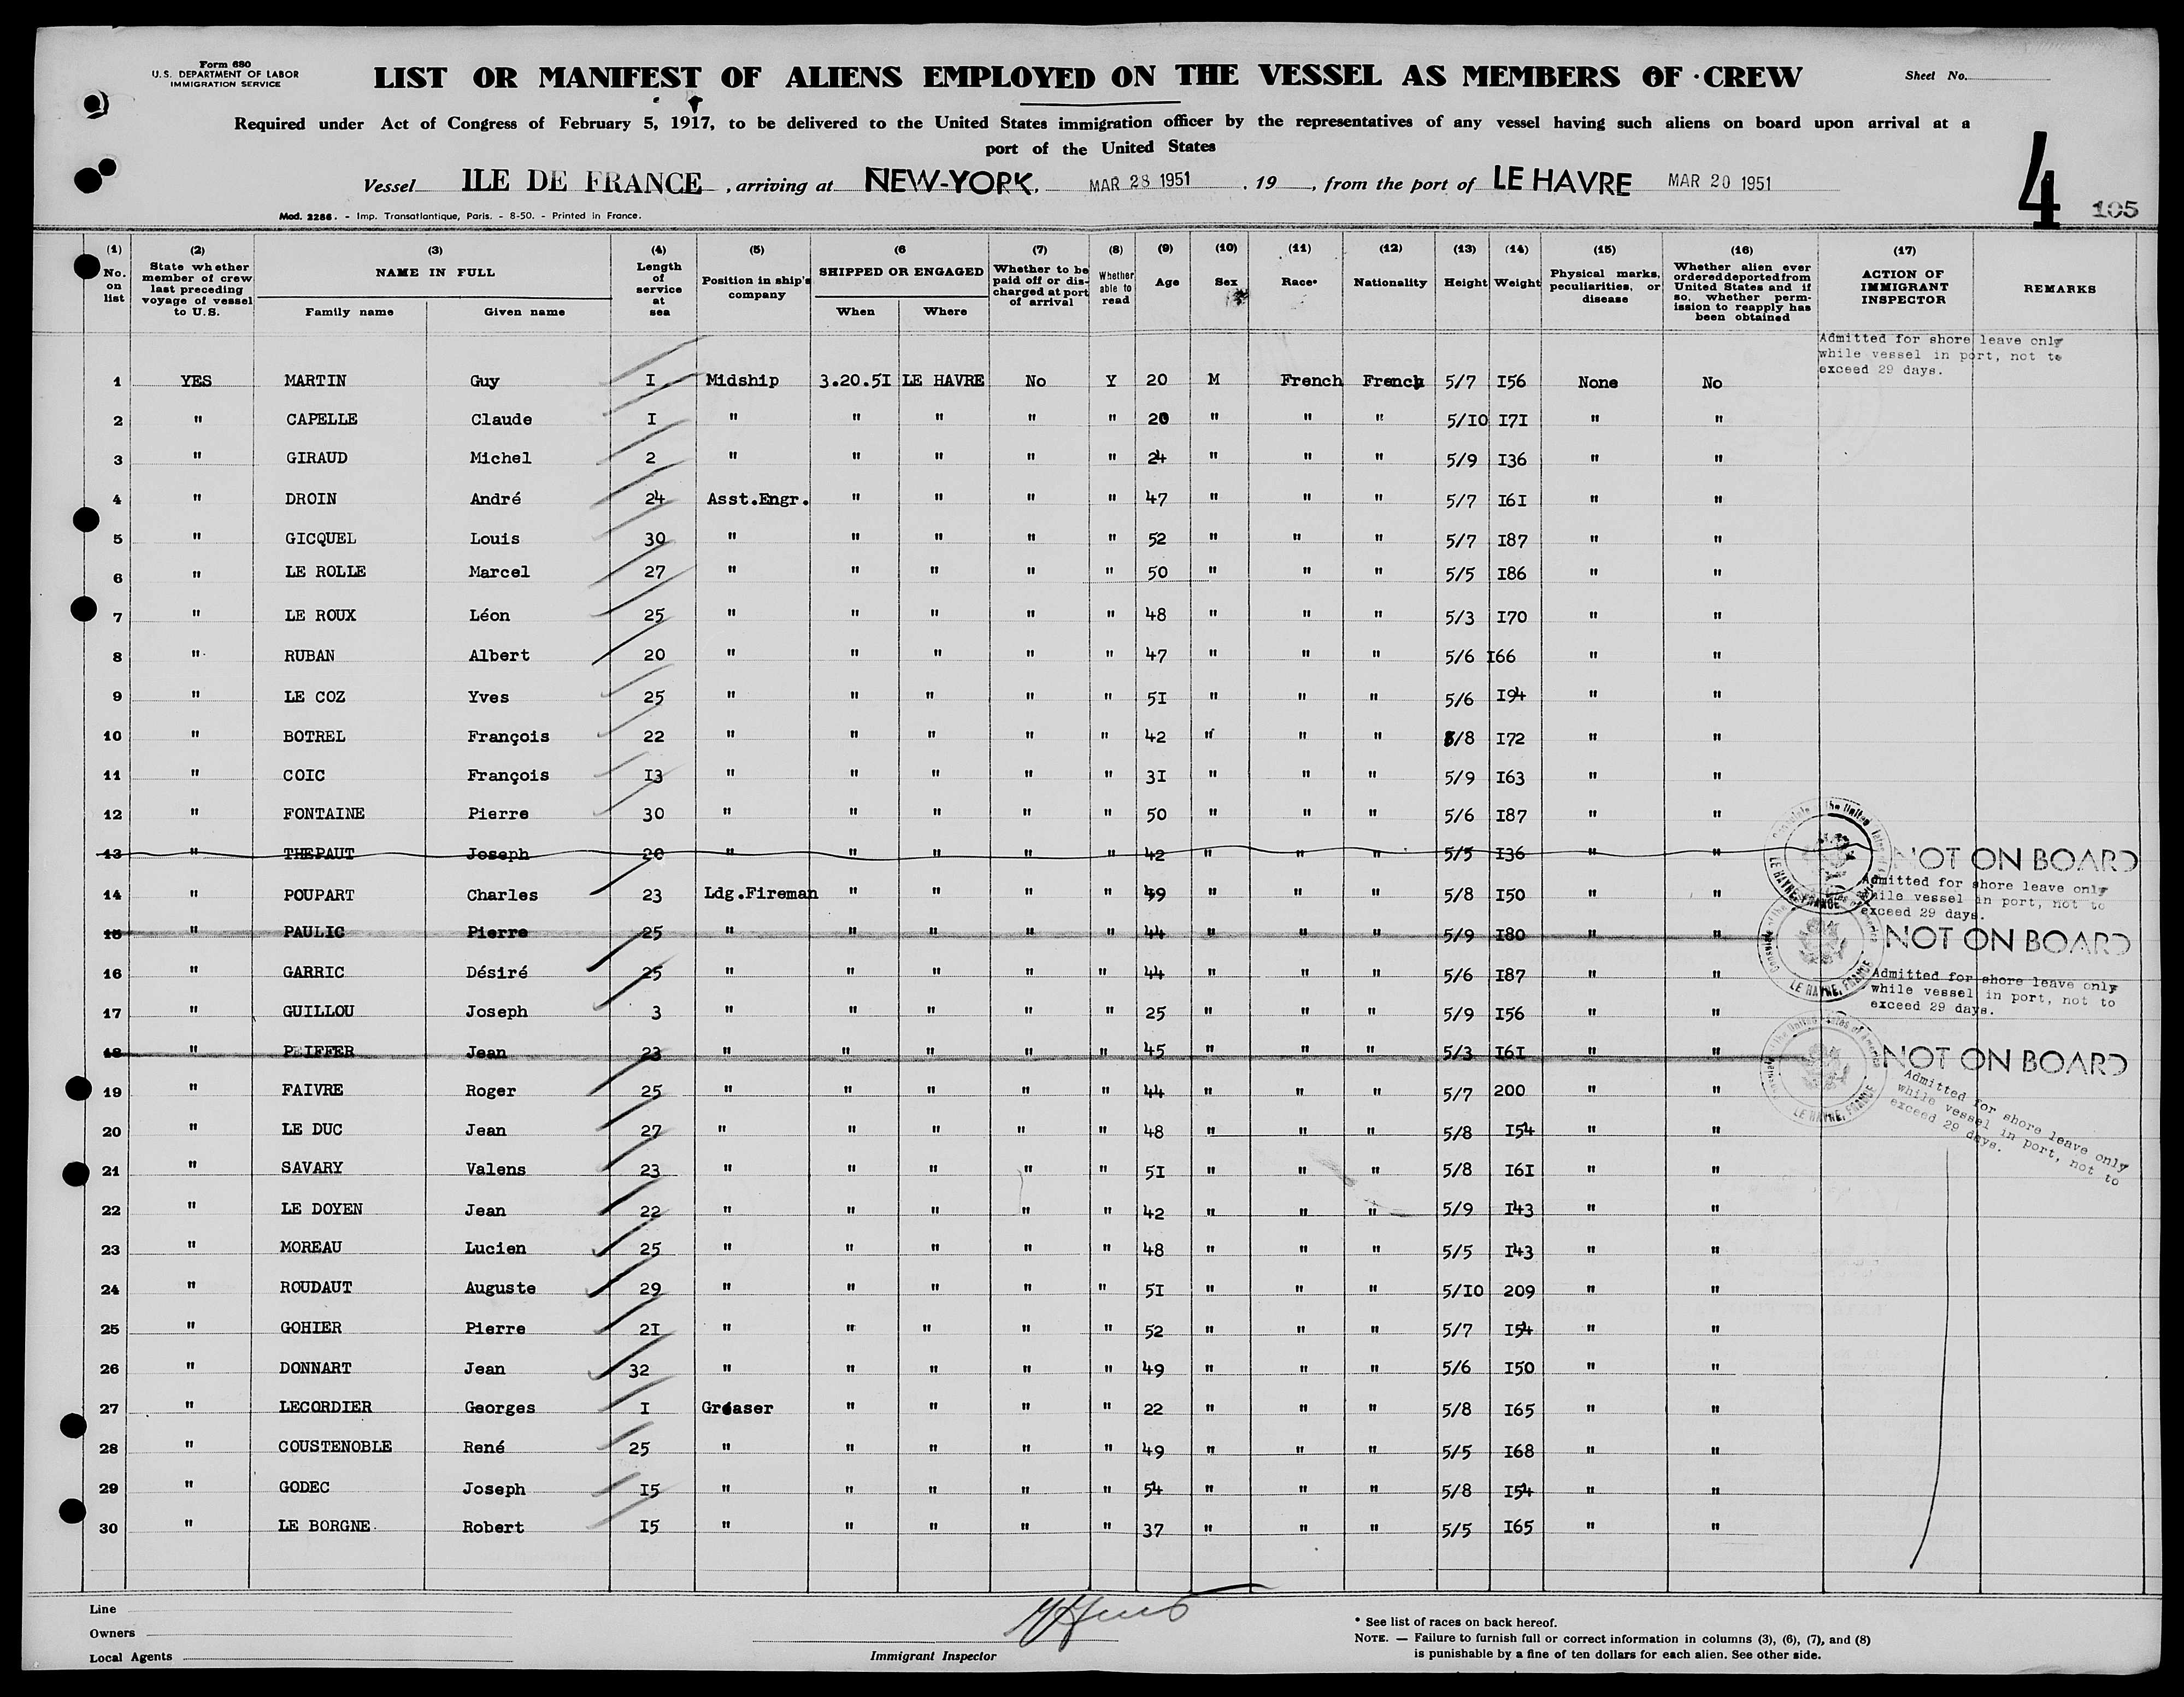 Form 680
U.S. DEPARTMENT OF LABOR
IMMIGRATION SERVICE
LIST OR MANIFEST OF ALIENS EMPLOYED ON THE VESSEL AS MEMBERS OF CREW
Sheet No.
Required under Act of Congress of February 5, 1917, to be delivered to the United States immigration officer by the representatives of any vessel having such aliens on board upon arrival at a
port of the United States
Vessel ILE DE FRANCE, arriving at NEW-YORK, MAR 28 1951, 19, from the port of LE HAVRE MAR 20 1951
4 105
Mod. 2286. - Imp. Transatlantique, Paris. - 8-50. - Printed in France.
(1) No. on list (2) State whether member of crew last preceding voyage of vessel to U.S. (3) NAME IN FULL Family name Given name (4) Length of service at sea (5) Position in ship's company (6 SHIPPED OR ENGAGED When Where (7) Whether to be paid off or discharged at port of arrival (8) Whether able to read (9) Age (10) Sex (11) Race* (12) Nationality (13) Height (14) Weight (15) Physical marks, peculiarities, or disease (16) Whether alien ever ordered deported from United States and if so, whether permission to reapply has been obtained (17) ACTION OF IMMIGRANT INSPECTOR REMARKS
Admitted for shore leave only
while vessel in port, not to
exceed 29 days.
1 YES MARTIN Guy I Midship 3.20.5I LE HAVRE No Y 20 M French French 5/7 I56 None No
2 " CAPELLE Claude I " " " " " 20 " " " 5/I0 I7I " "
3 " GIRAUD Michel 2 " " " " " 24 " " " 5/9 I36 " "
4 " DROIN André 24 Asst.Engr. " " " " 47 " " " 5/7 I6I " "
5 " GICQUEL Louis 30 " " " " " 52 " " " 5/7 I87 " "
6 " LE ROLLE Marcel 27 " " " " " 50 " " " 5/5 I86 " "
7 " LE ROUX Léon 25 " " " " " 48 " " " 5/3 I70 " "
8 " RUBAN Albert 20 " " " " " 47 " " " 5/6 I66 " "
9 " LE COZ Yves 25 " " " " " 5I " " " 5/6 I94 " "
10 " BOTREL François 22 " " " " " 42 " " " 5/8 I72 " "
11 " COIC François I3 " " " " " 3I " " " 5/9 I63 " "
12 " FONTAINE Pierre 30 " " " " " 50 " " " 5/6 I87 " "
13 " THEPAUT Joseph 20 " " " " " 42 " " " 5/5 I36 " " NOT ON BOARD
14 " POUPART Charles 23 Ldg.Fireman " " " " 49 " " " 5/8 I50 " "
Admitted for shore leave only
while vessel in port, not to
exceed 29 days.
15 " PAULIC Pierre 25 " " " " " 44 " " " 5/9 I80 " " NOT ON BOARD
16 " GARRIC Désiré 25 " " " " " 44 " " " 5/6 I87 " "
Admitted for shore leave only
while vessel in port, not to
exceed 29 days.
17 " GUILLOU Joseph 3 " " " " " 25 " " " 5/9 I56 " "
18 " PEIFFER Jean 23 " " " " " 45 " " " 5/3 I6I " " NOT ON BOARD
19 " FAIVRE Roger 25 " " " " " 44 " " " 5/7 200 " "
Admitted for shore leave only
while vessel in port, not to
exceed 29 days.
20 " LE DUC Jean 27 " " " " " 48 " " " 5/8 I54 " "
21 " SAVARY Valens 23 " " " " " 5I " " " 5/8 I6I " "
22 " LE DOYEN Jean 22 " " " " " 42 " " " 5/9 I43 " "
23 " MOREAU Lucien 25 " " " " " 48 " " " 5/5 I43 " "
24 " ROUDAUT Auguste 29 " " " " " 5I " " " 5/I0 209 " "
25 " GOHIER Pierre 2I " " " " " 52 " " " 5/7 I54 " "
26 " DONNART Jean 32 " " " " " 49 " " " 5/6 I50 " "
27 " LECORDIER Georges I Greaser " " " " 22 " " " 5/8 I65 " "
28 " COUSTENOBLE René 25 " " " " " 49 " " " 5/5 I68 " "
29 " GODEC Joseph I5 " " " " " 54 " " " 5/8 I54 " "
30 " LE BORGNE Robert I5 " " " " " 37 " " " 5/5 I65 " "
LE HAVRE, FRANCE
LE HAVRE, FRANCE
LE HAVRE, FRANCE
Line
Owners
Local Agents
Immigrant Inspector
* See list of races on back hereof.
NOTE. — Failure to furnish full or correct information in columns (3), (6), (7), and (8)
is punishable by a fine of ten dollars for each alien. See other side.